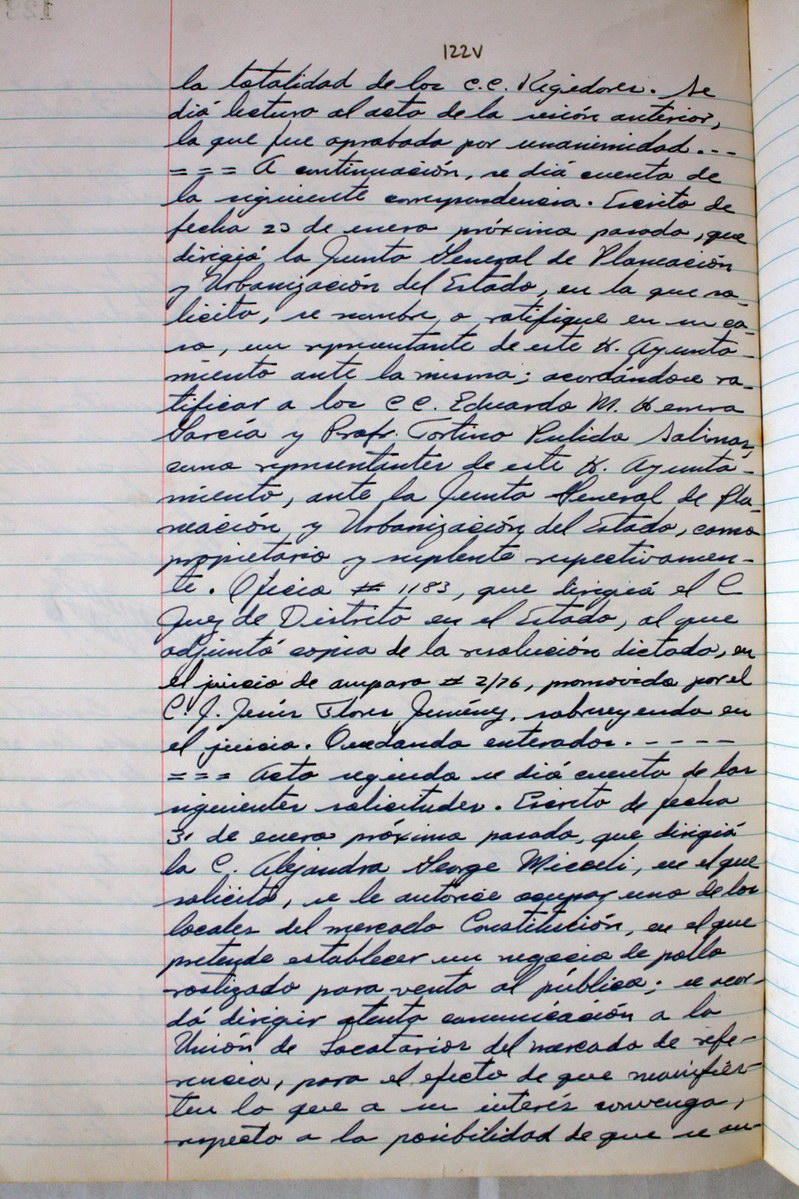 122V
la totalidad de los C.C. Regidores. Se
dió lectura al acta de la sesión anterior,
la que fue aprobada por unanimidad. - - -
= = = A continuación, se dió cuenta de
la siguiente correspondencia. Escrito de
fecha 23 de enero próximo pasado, que
dirigió la Junta General de Planeación
y Urbanización del Estado, en la que so-
licita, se nombre o ratifique en su ca-
so, un representante de este H. Ayunta-
miento ante la misma; acordándose ra-
tificar a los C C. Eduardo M. Herrera
García y Profr. Tortino Pulido Salinas,
como representantes de este H. Ayunta-
miento, ante la Junta General de Pla-
neación y Urbanización del Estado, como
propietario y suplente respectivamen-
te. Oficio # 1183, que dirigió el C
Juez de Distrito en el Estado, al que
adjuntó copia de la resolución dictada, en
el juicio de amparo # 2/76, promovido por el
C. J. Jesús Flores Jiménez, sobreseyendo en
el juicio. Quedando enterados. - - - - -
= = = Acto seguido se dió cuenta de las
siguientes solicitudes. Escrito de fecha
31 de enero próximo pasado, que dirigió
la C. Alejandra George Micceli, en el que
solicita, se le autorice ocupar uno de los
locales del mercado Constitución, en el que
pretende establecer un negocio de pollo
rostizado para venta al público; se acor-
dó dirigir atenta comunicación a la
Unión de Locatarios del mercado de refe-
rencia, para el efecto de que manifies-
ten lo que a su interés convenga,
respecto a la posibilidad de que se au-